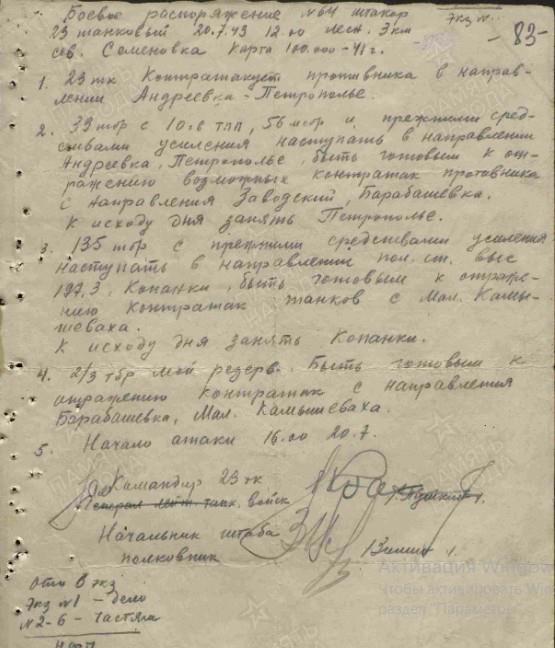 Боевое распоряжение № 64 штакор
Экз №
-83-
23 танковый 20.7.43 12.00 лес. 3 км
сев. Семеновка карта 100.000-41 г.
1. 23 тк контратакует противника в направ-
лении Андреевка - Петрополье.
2. 39 тбр с 10 гв ТПП, 56 мсбр и прежними сред-
ствами усиления наступать в направлении
Андреевка, Петрополье, быть готовым к от-
ражению возможных контратак противника
с направления Заводский, Барабашевка.
К исходу дня занять Петрополье.
3. 135 тбр с прежними средствами усиления
наступать в направлении пол. ст. выс
197,3, Копанки, быть готовым к отраже-
нию контратак танков с Мал. Камы-
шеваха.
К исходу дня занять Копанки.
4. 2/3 тбр мой резерв. Быть готовым к
отражению контратак с направления
Барабашевка, Мал. Камышеваха.
5. Начало атаки 16.00 20.7.
Командир 23 тк
Генерал лейт. танк. войск /Пушкин/.
Начальник штаба
полковник
отп 6 экз
Экз № 1 - дело
№ 2-6 - частям
Активация Window
Чтобы активировать Win
раздел "Параметры".
ПАМЯТЬ